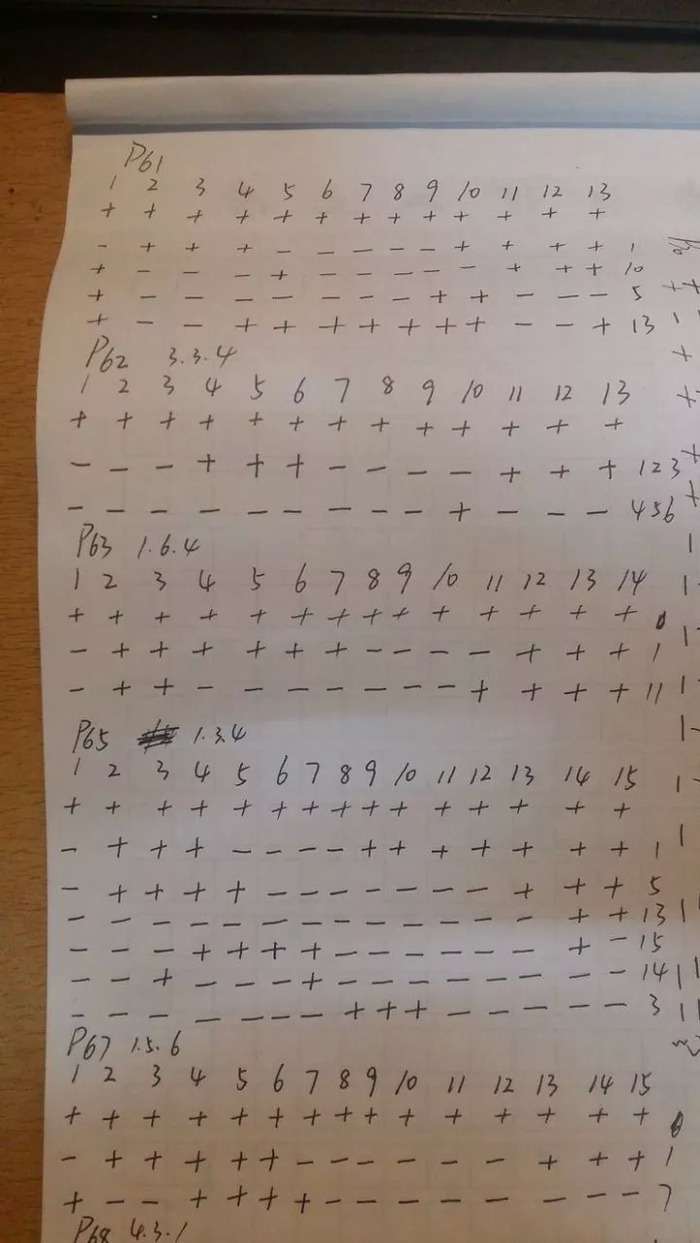 P61
1 2 3 4 5 6 7 8 9 10 11 12 13
+ + + + + + + + + + + + +
- + + + - - - - - + + + + 1
+ - - - + - - - - - + + + 10
+ - - - - - - - + + - - - 5
+ - - + + + + + + + - - + 13
P62 3.3.4
1 2 3 4 5 6 7 8 9 10 11 12 13
+ + + + + + + + + + + + +
- - - + + + - - - - + + + 123
- - - - - - - - - + - - - 456
P63 1.6.4
1 2 3 4 5 6 7 8 9 10 11 12 13 14
+ + + + + + + + + + + + + + 0
- + + + + + + - - - - + + + 1
- + + - - - - - - - + + + + 11
P65 1.3.4
1 2 3 4 5 6 7 8 9 10 11 12 13 14 15
+ + + + + + + + + + + + + + +
- + + + - - - - + + + + + + + 1
- + + + + - - - - - - - + + + 5
- - - - - - - - - - - - - + + 13
- - - + + + + - - - - - - + - 15
- - + - - - + - - - - - - - - 14
- - - - - - - + + + - - - - - 3
P67 1.5.6
1 2 3 4 5 6 7 8 9 10 11 12 13 14 15
+ + + + + + + + + + + + + + +
- + + + + + - - - - - - + + + 1
+ - - + + + + - - - - - - - - 7
P68 4.3.1